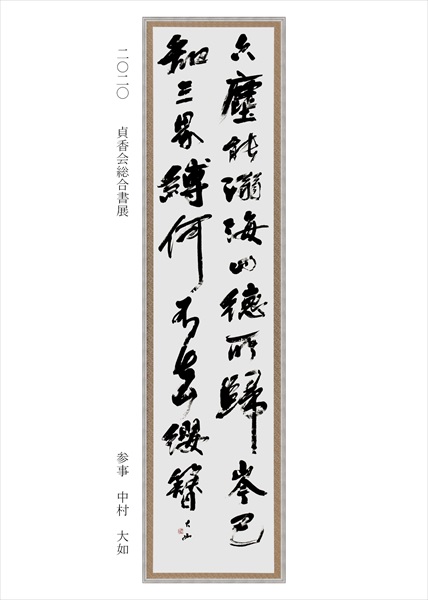 六塵能溺海四德所歸岑已
知三界縛何不去纓簪
大如
二〇二〇　貞香会総合書展
参事　中村　大如